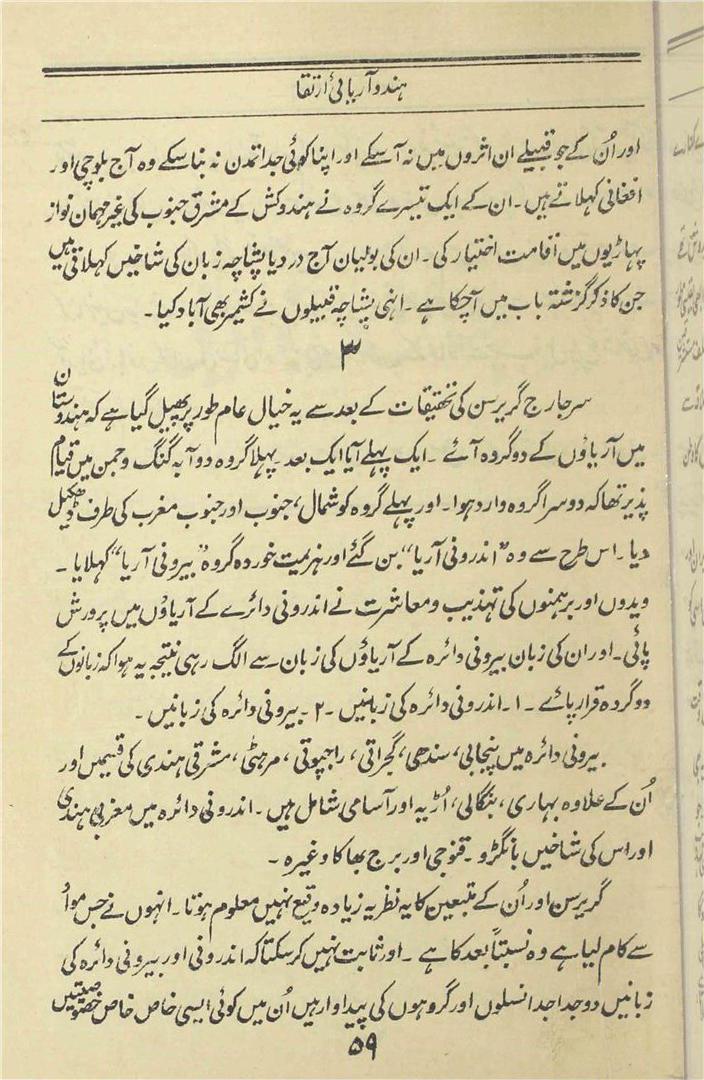 ہندوآریائی ارتقا
اور اُن کے جو قبیلے ان اثروں میں نہ آسکے اور اپنا کوئی جدا تمدن نہ بنا سکے وہ آج بلوچی اور
افغانی کہلاتے ہیں۔ ان کے ایک تیسرے گروہ نے ہندوکش کے مشرق جنوب کی غیر مہمان نواز
پہاڑیوں میں اقامت اختیار کی۔ ان کی بولیان آج دردیا پشاچہ زبان کی شاخیں کہلاتی ہیں
جن کا ذکر گزشتہ باب میں آچکا ہے۔ انہی پشاچہ قبیلوں نے کشمیر بھی آباد کیا۔
۳
سر جارج گریرسن کی تحقیقات کے بعد سے یہ خیال عام طور پر پھیل گیا ہے کہ ہندوستان
میں آریاؤں کے دو گروہ آئے۔ ایک پہلے آیا ایک بعد پہلا گروہ دوآبہ گنگ وجمن میں قیام
پذیر تھا کہ دوسرا گروہ وارد ہوا۔ اور پہلے گروہ کو شمال، جنوب اور جنوب مغرب کی طرف دھکیل
دیا۔ اس طرح سے وہ "اندرونی آریا" بن گئے اور ہزیمت خوردہ گروہ "بیرونی آریا" کہلایا۔
ویدوں اور برہمنوں کی تہذیب ومعاشرت نے اندرونی دائرے کے آریاؤں میں پرورش
پائی۔ اور ان کی زبان بیرونی دائرہ کے آریاؤں کی زبان سے الگ رہی نتیجہ یہ ہوا کہ زبانوں کے
دو گروہ قرار پائے۔ ۱۔ اندرونی دائرہ کی زبانیں۔ ۲۔ بیرونی دائرہ کی زبانیں۔
بیرونی دائرہ میں پنجابی، سندھی، گجراتی، راجپوتی، مرہٹی، مشرقی ہندی کی قسیمیں اور
اُن کے علاوہ بہاری، بنگالی، اُڑیہ اور آسامی شامل ہیں۔ اندرونی دائرہ میں مغربی ہندی
اور اس کی شاخیں بانگڑو۔ قنوجی اور برج بھاکا وغیرہ۔
گریرسن اور اُن کے متبعین کا یہ نظریہ زیادہ وقیع نہیں معلوم ہوتا۔ انہوں نے جس مواد
سے کام لیا ہے وہ نسبتاً بعد کا ہے۔ اور ثابت نہیں کرسکتا کہ اندرونی اور بیرونی دائرہ کی
زبانیں دو جدا جدا نسلوں اور گروہوں کی پیداوار ہیں اُن میں کوئی ایسی خاص خاص خصوصیتیں
۵۹